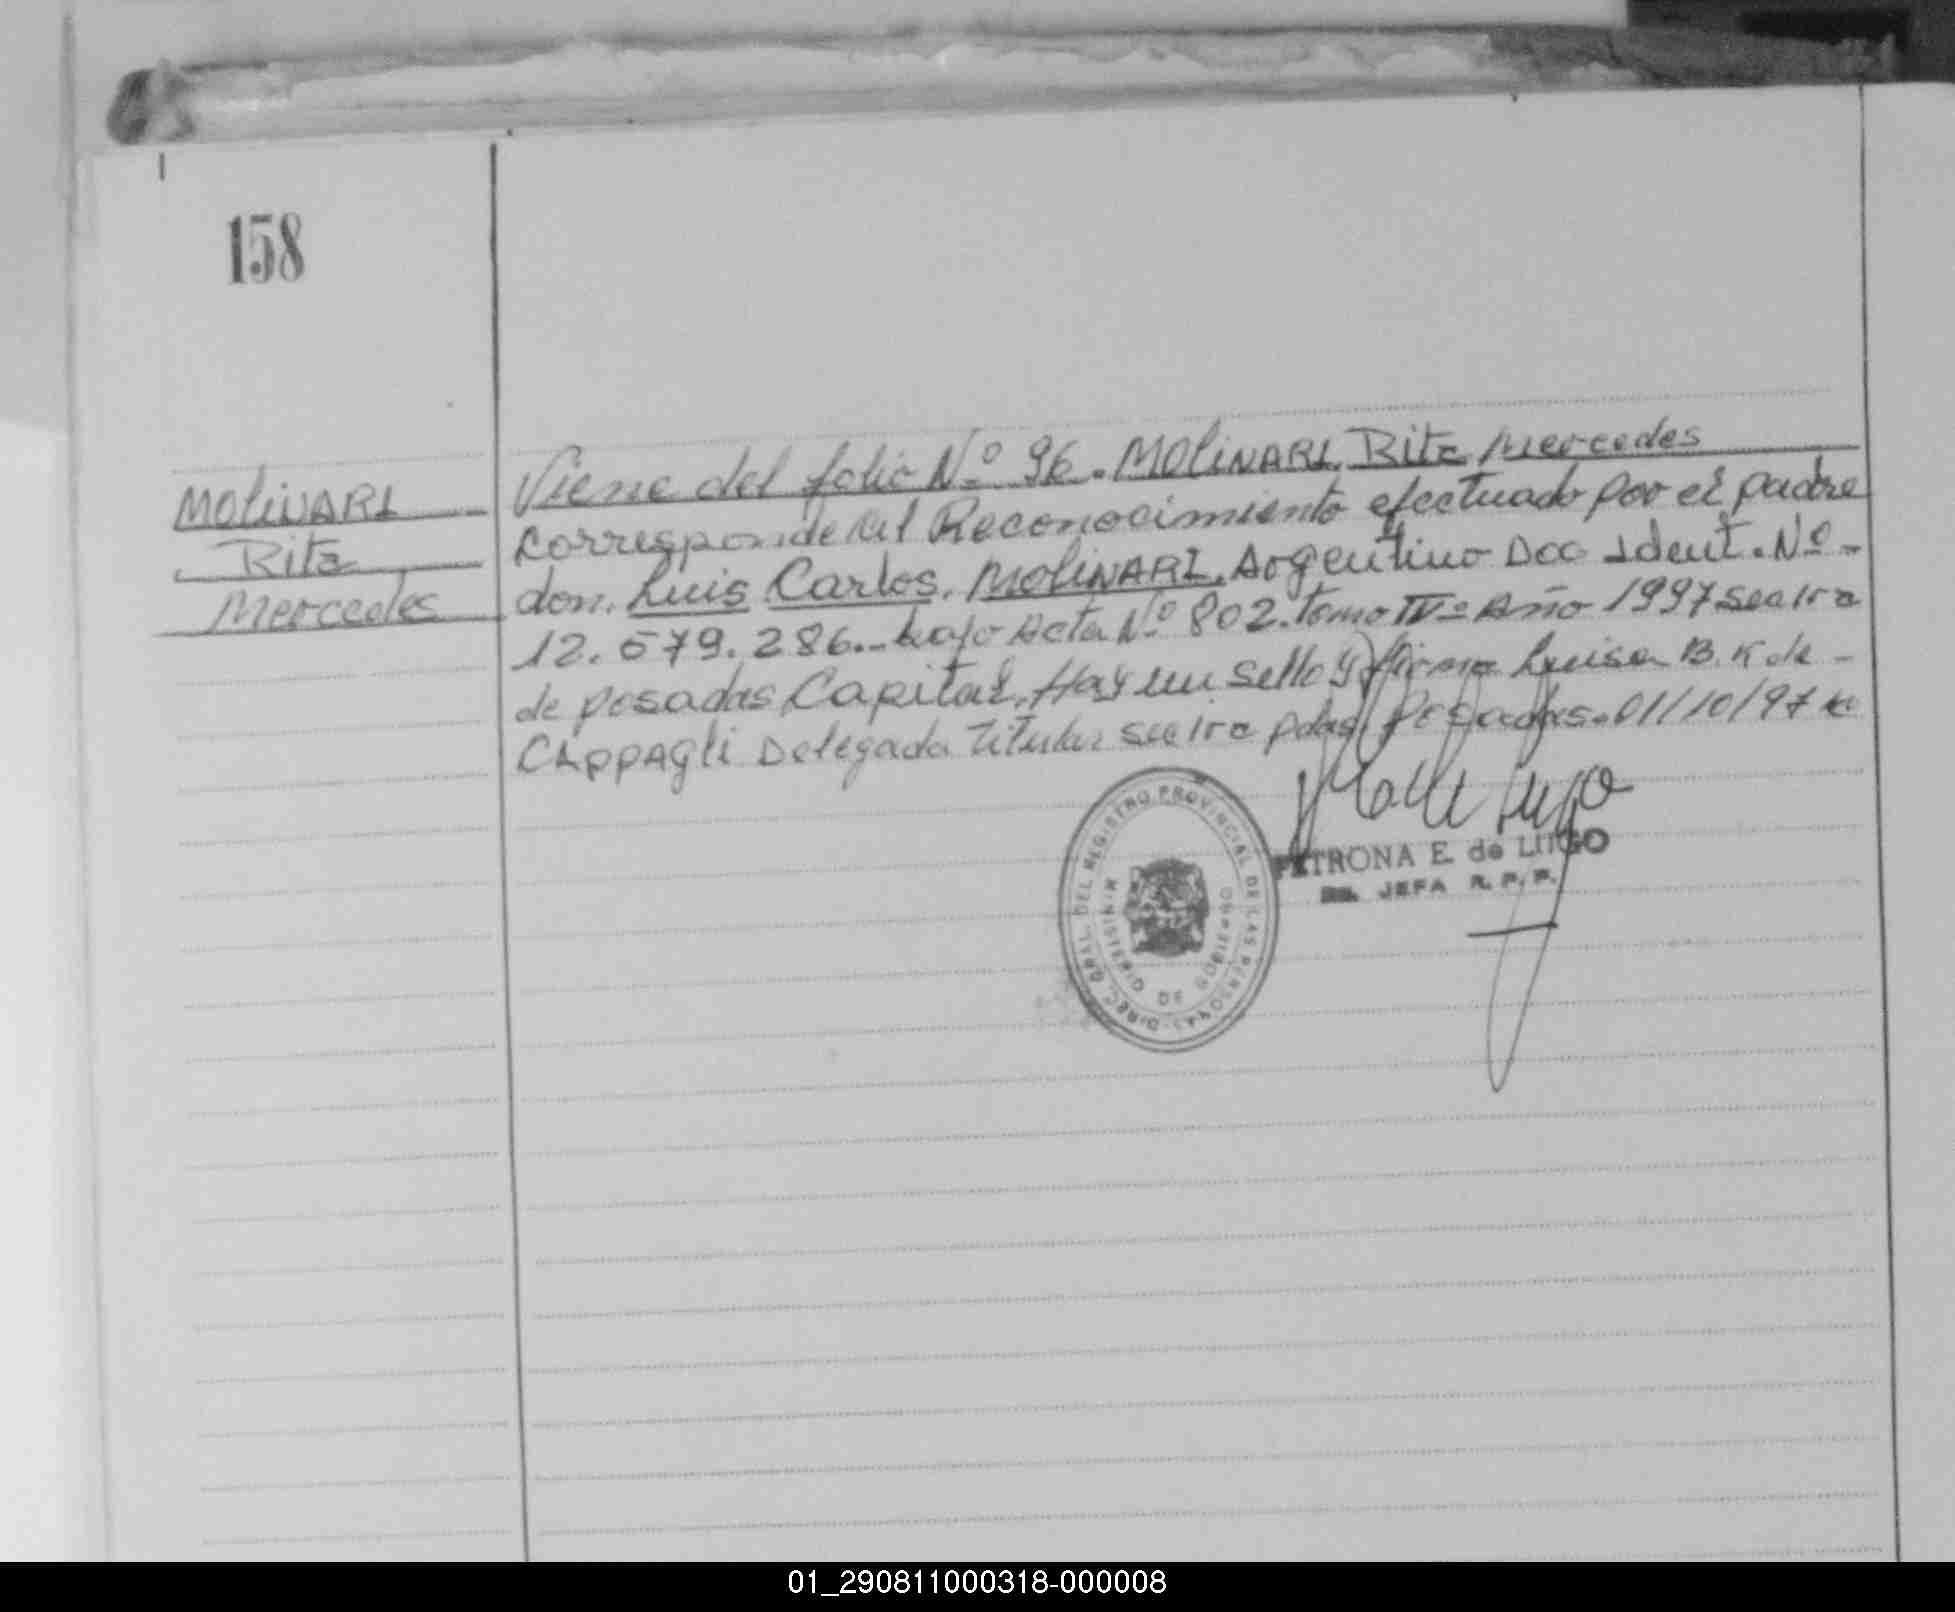 158
MOLINARI
Rita
Mercedes
Viene del folio Nº 96. MOLINARI, Rita Mercedes
corresponde al Reconocimiento efectuado por el padre
don. Luis Carlos. MOLINARI. Argentino Doc Ident. Nº-
12.579.286.- bajo Acta Nº 802. tomo IVº Año 1997
de posadas Capital. Hay un sello y firma Luisa B. K de -
CAppAgli Delegada titular pdas. Posadas. 01/10/97
PETRONA E. de LUGO
JEFA R.P.P.
DIREC. GRAL. DEL REGISTRO PROVINCIAL DE LAS PERSONAS
MINISTERIO DE GOBIERNO
01_290811000318-000008